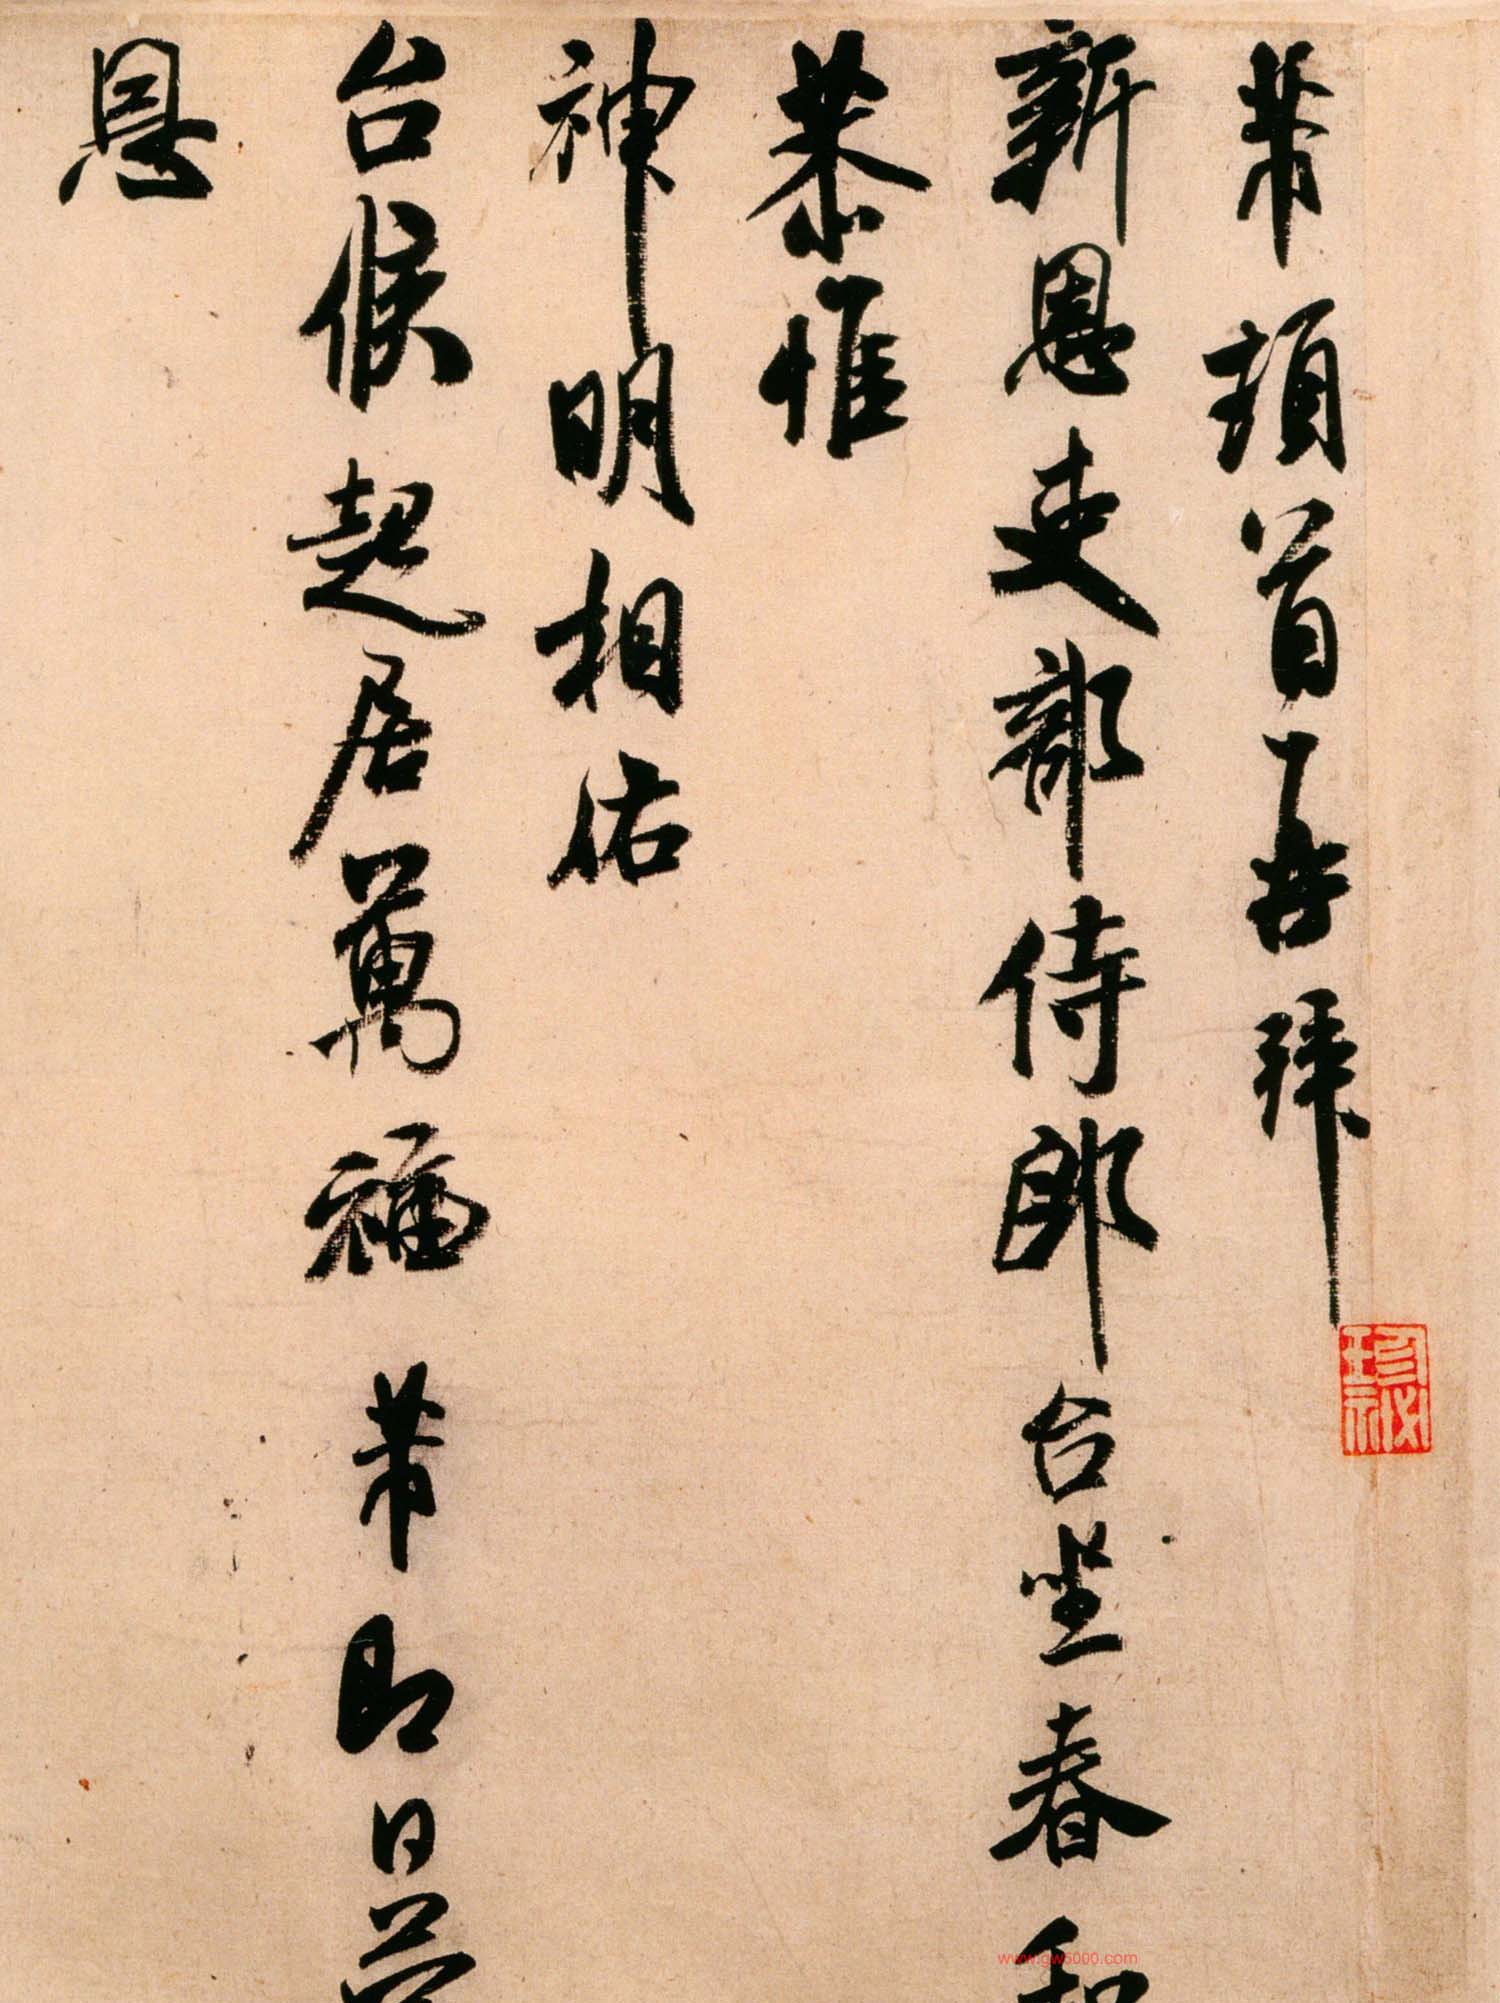 芾頓首再拜
新恩吏部侍郎台坐春和
恭惟
神明相佑
台候起居萬福芾即日蒙
恩
珍祕
www.gw5000.com